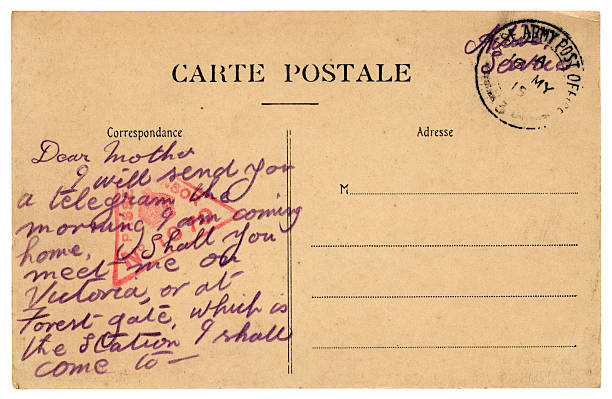 CARTE POSTALE
Correspondance
Adresse
M
Dear Mother
I will send you
a telegram the
morning I am coming
home, Shall you
meet me on
Victoria, or at
Forest gate, which is
the Station I shall
come to —
Active
Service
ARMY POST OFFICE
MY
15
PASSED
CENSOR
No 1979